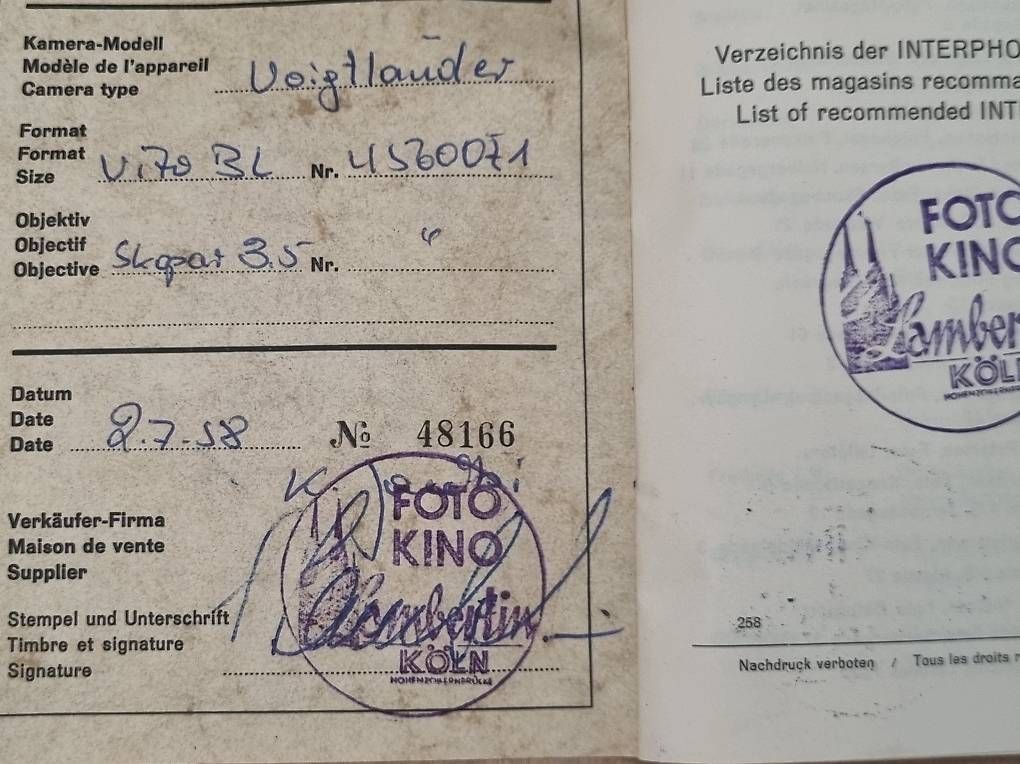 Kamera-Modell
Modèle de l'appareil
Camera type
Voigtländer
Format
Format
Size
Vito BL Nr. 4560071
Objektiv
Objectif
Objective
Skopar 3.5 Nr. "
Datum
Date
Date
2.7.58 № 48166
Verkäufer-Firma
Maison de vente
Supplier
Stempel und Unterschrift
Timbre et signature
Signature
FOTO
KINO
Lambertin
KÖLN
HOHENZOLLERNBRÜCKE
Verzeichnis der INTERPHO
Liste des magasins recomma
List of recommended INT
FOTO
KINO
Lambert
KÖL
258
Nachdruck verboten / Tous les droits r